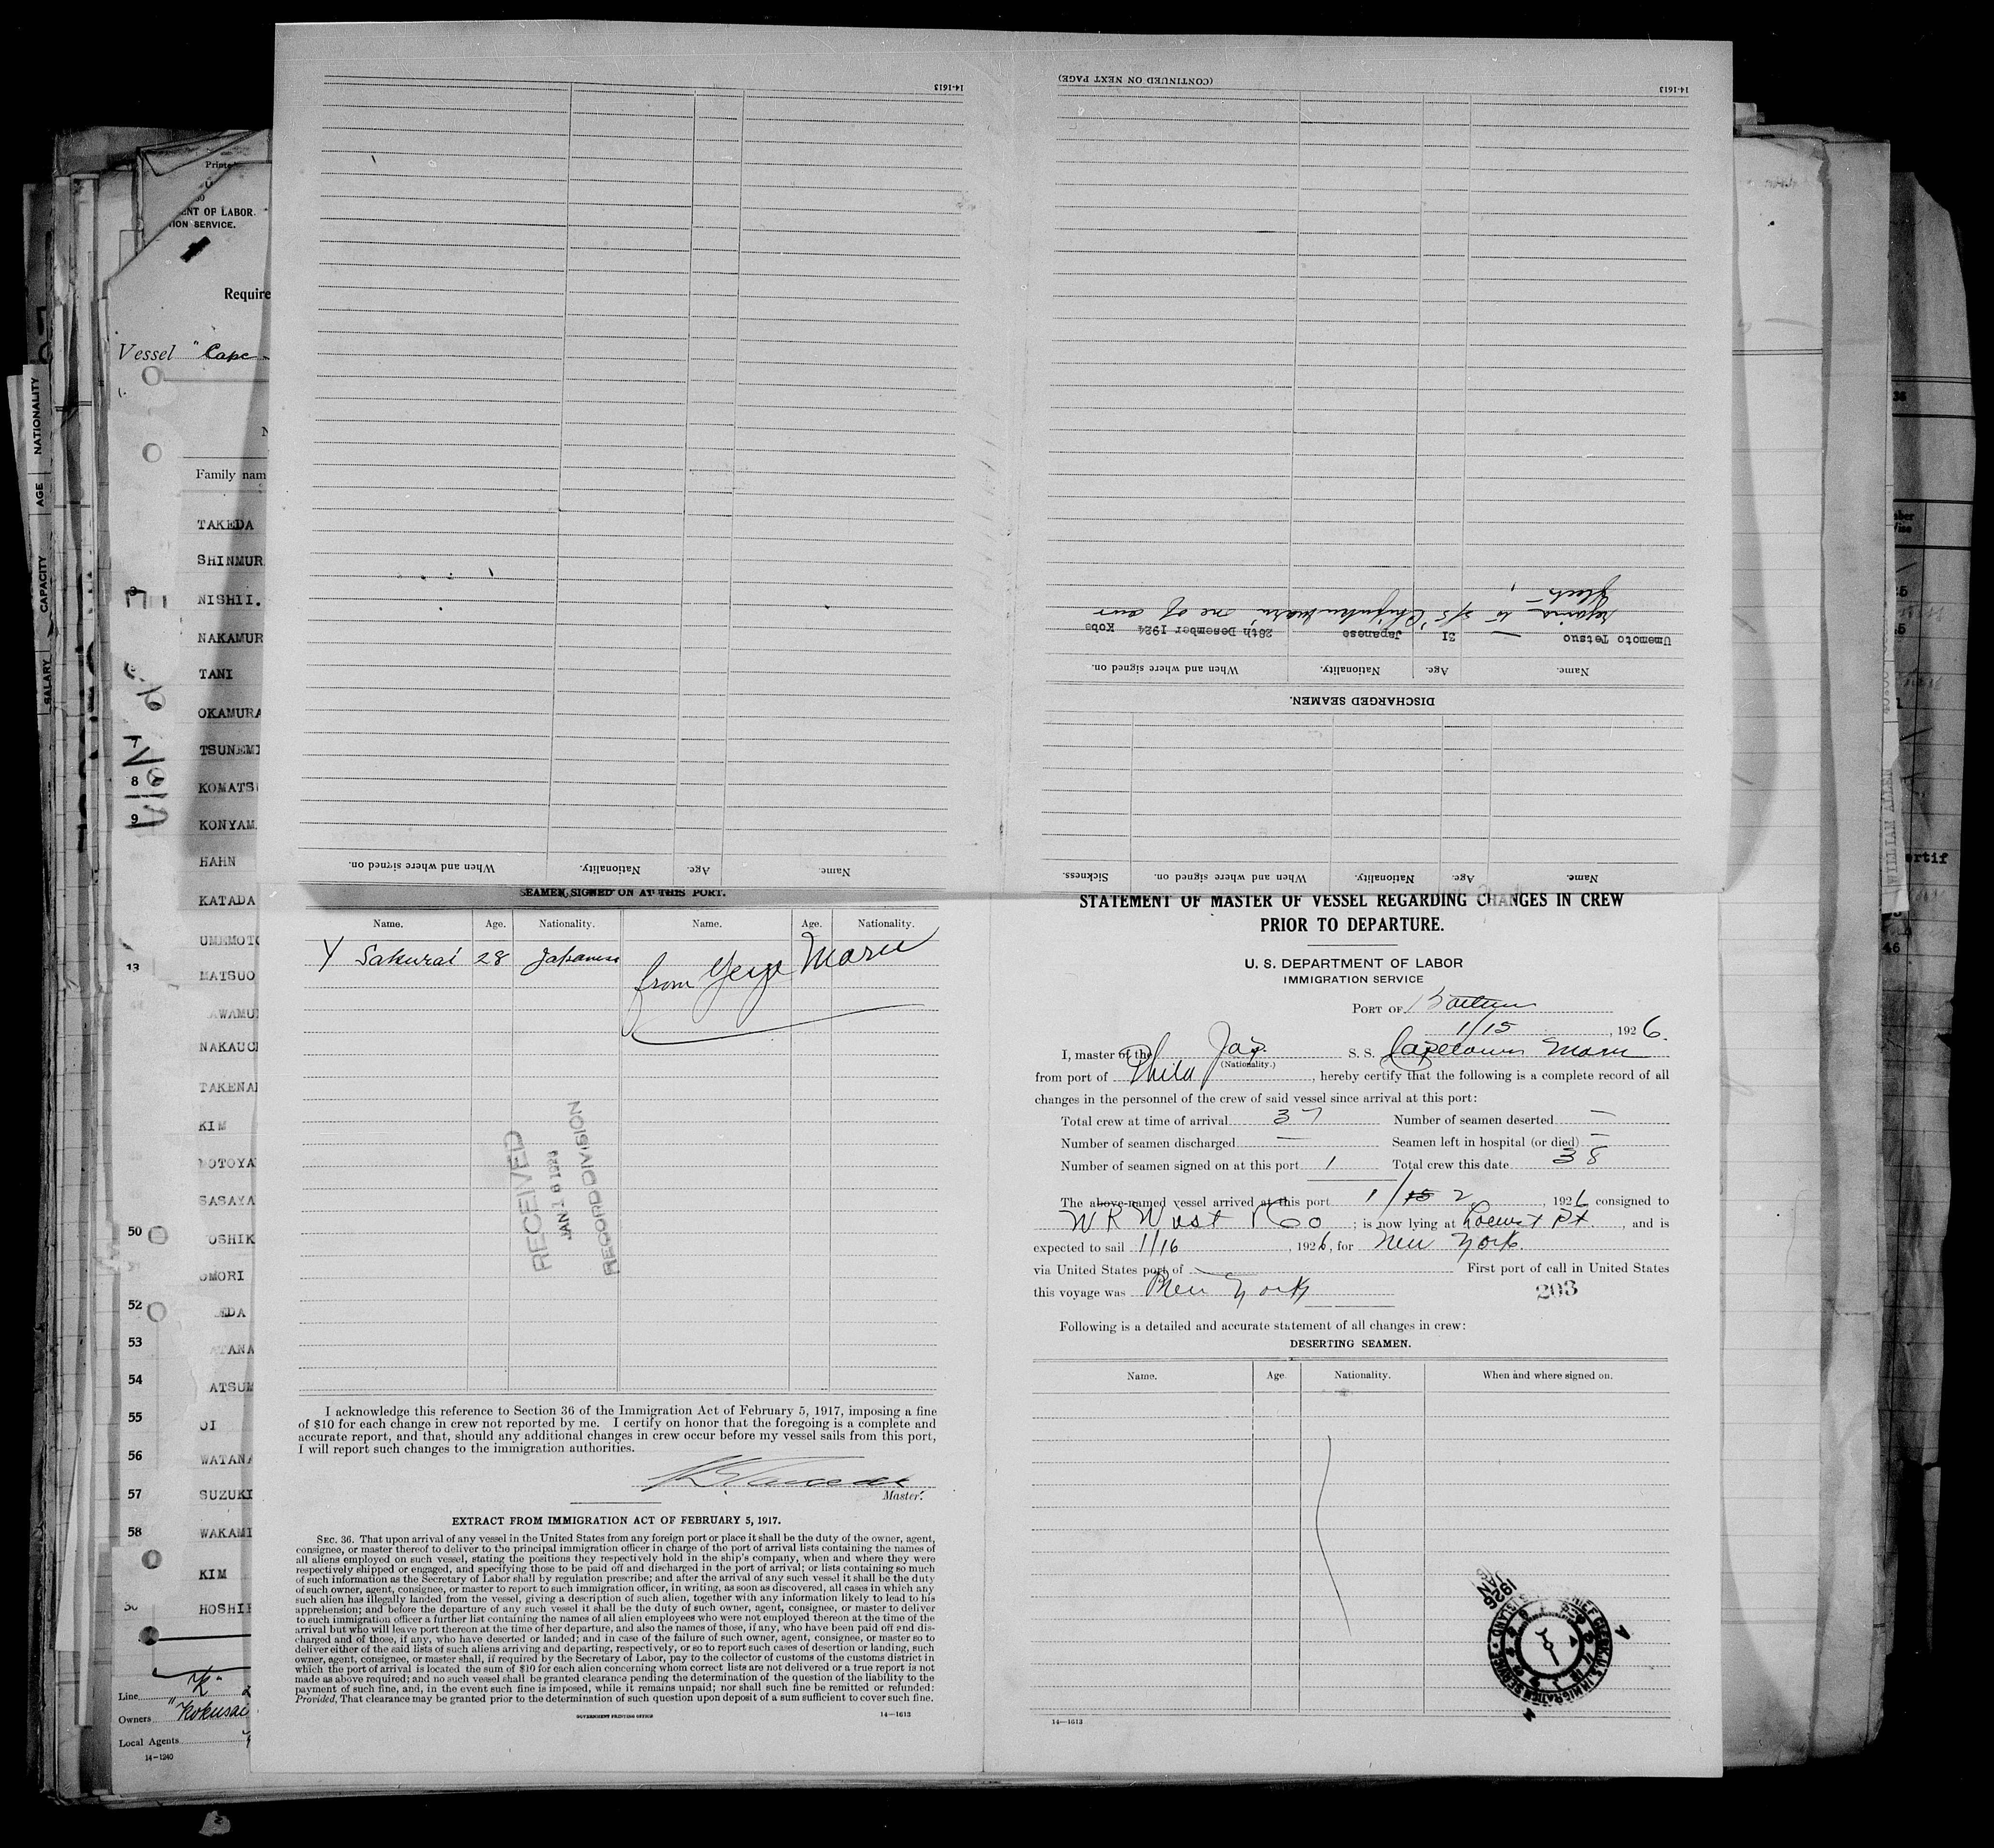 14-1613
(CONTINUED ON NEXT PAGE)
14-1613
Name.
Age.
Nationality.
When and where signed on.
Name. Age. Nationality. When and where signed on. Sickness.
DISCHARGED SEAMEN.
Name. Age. Nationality. When and where signed on.
Umemoto Tetsuo 31 Japanese 28th Desember 1924 Kobe
to s/s one of our
Printe
ENT OF LABOR
TION SERVICE.
Require
Vessel "Cape
Family nam
TAKEDA
SHINMUR
NISHII.
NAKAMUR
TANI
OKAMURA
TSUNEMI
8 KOMATS
9 KONYAM
HAHN
KATADA
UMEMOTO
13 MATSUO
AWAMU
NAKAUC
TAKENA
KIM
MOTOYA
SASAYA
50 OSHIK
OMORI
52 EDA
53 ATANA
54 ATSUM
55 OI
56 WATANA
57 SUZUKI
58 WAKAMI
KIM
HOSHII
Line
Owners "Kokusai
Local Agents
14-1240
NATIONALITY
AGE
CAPACITY
SALARY
SEAMEN SIGNED ON AT THIS PORT.
Name. Age. Nationality. Name. Age. Nationality.
Y Sakurai 28 Japanese
from Maru
RECEIVED
RECORD DIVISION
I acknowledge this reference to Section 36 of the Immigration Act of February 5, 1917, imposing a fine
of $10 for each change in crew not reported by me. I certify on honor that the foregoing is a complete and
accurate report, and that, should any additional changes in crew occur before my vessel sails from this port,
I will report such changes to the immigration authorities.
Master.
EXTRACT FROM IMMIGRATION ACT OF FEBRUARY 5, 1917.
SEC. 36. That upon arrival of any vessel in the United States from any foreign port or place it shall be the duty of the owner, agent,
consignee, or master thereof to deliver to the principal immigration officer in charge of the port of arrival lists containing the names of
all aliens employed on such vessel, stating the positions they respectively hold in the ship's company, when and where they were
respectively shipped or engaged, and specifying those to be paid off and discharged in the port of arrival; or lists containing so much
of such information as the Secretary of Labor shall by regulation prescribe; and after the arrival of any such vessel it shall be the duty
of such owner, agent, consignee, or master to report to such immigration officer, in writing, as soon as discovered, all cases in which any
such alien has illegally landed from the vessel, giving a description of such alien, together with any information likely to lead to his
apprehension; and before the departure of any such vessel it shall be the duty of such owner, agent, consignee, or master to deliver
to such immigration officer a further list containing the names of all alien employees who were not employed thereon at the time of the
arrival but who will leave port thereon at the time of her departure, and also the names of those, if any, who have been paid off and dis-
charged and of those, if any, who have deserted or landed; and in case of the failure of such owner, agent, consignee, or master so to
deliver either of the said lists of such aliens arriving and departing, respectively, or so to report such cases of desertion or landing, such
owner, agent, consignee, or master shall, if required by the Secretary of Labor, pay to the collector of customs of the customs district in
which the port of arrival is located the sum of $10 for each alien concerning whom correct lists are not delivered or a true report is not
made as above required; and no such vessel shall be granted clearance pending the determination of the question of the liability to the
payment of such fine, and, in the event such fine is imposed, while it remains unpaid; nor shall such fine be remitted or refunded:
Provided, That clearance may be granted prior to the determination of such question upon deposit of a sum sufficient to cover such fine.
GOVERNMENT PRINTING OFFICE
14-1613
STATEMENT OF MASTER OF VESSEL REGARDING CHANGES IN CREW
PRIOR TO DEPARTURE.
U. S. DEPARTMENT OF LABOR
IMMIGRATION SERVICE
PORT OF
1/15, 1926.
I, master of the Jap. S. S. Capetown Maru
(Nationality.)
from port of Phila, hereby certify that the following is a complete record of all
changes in the personnel of the crew of said vessel since arrival at this port:
Total crew at time of arrival 37 Number of seamen deserted —
Number of seamen discharged — Seamen left in hospital (or died) —
Number of seamen signed on at this port 1 Total crew this date 38
The above-named vessel arrived at this port 1/15 2, 1926 consigned to
W R ; is now lying at Locust Pt, and is
expected to sail 1/16, 1926, for New York.
via United States port of — First port of call in United States
this voyage was New York
203
Following is a detailed and accurate statement of all changes in crew:
DESERTING SEAMEN.
Name. Age. Nationality. When and where signed on.
JAN 1926
14-1613